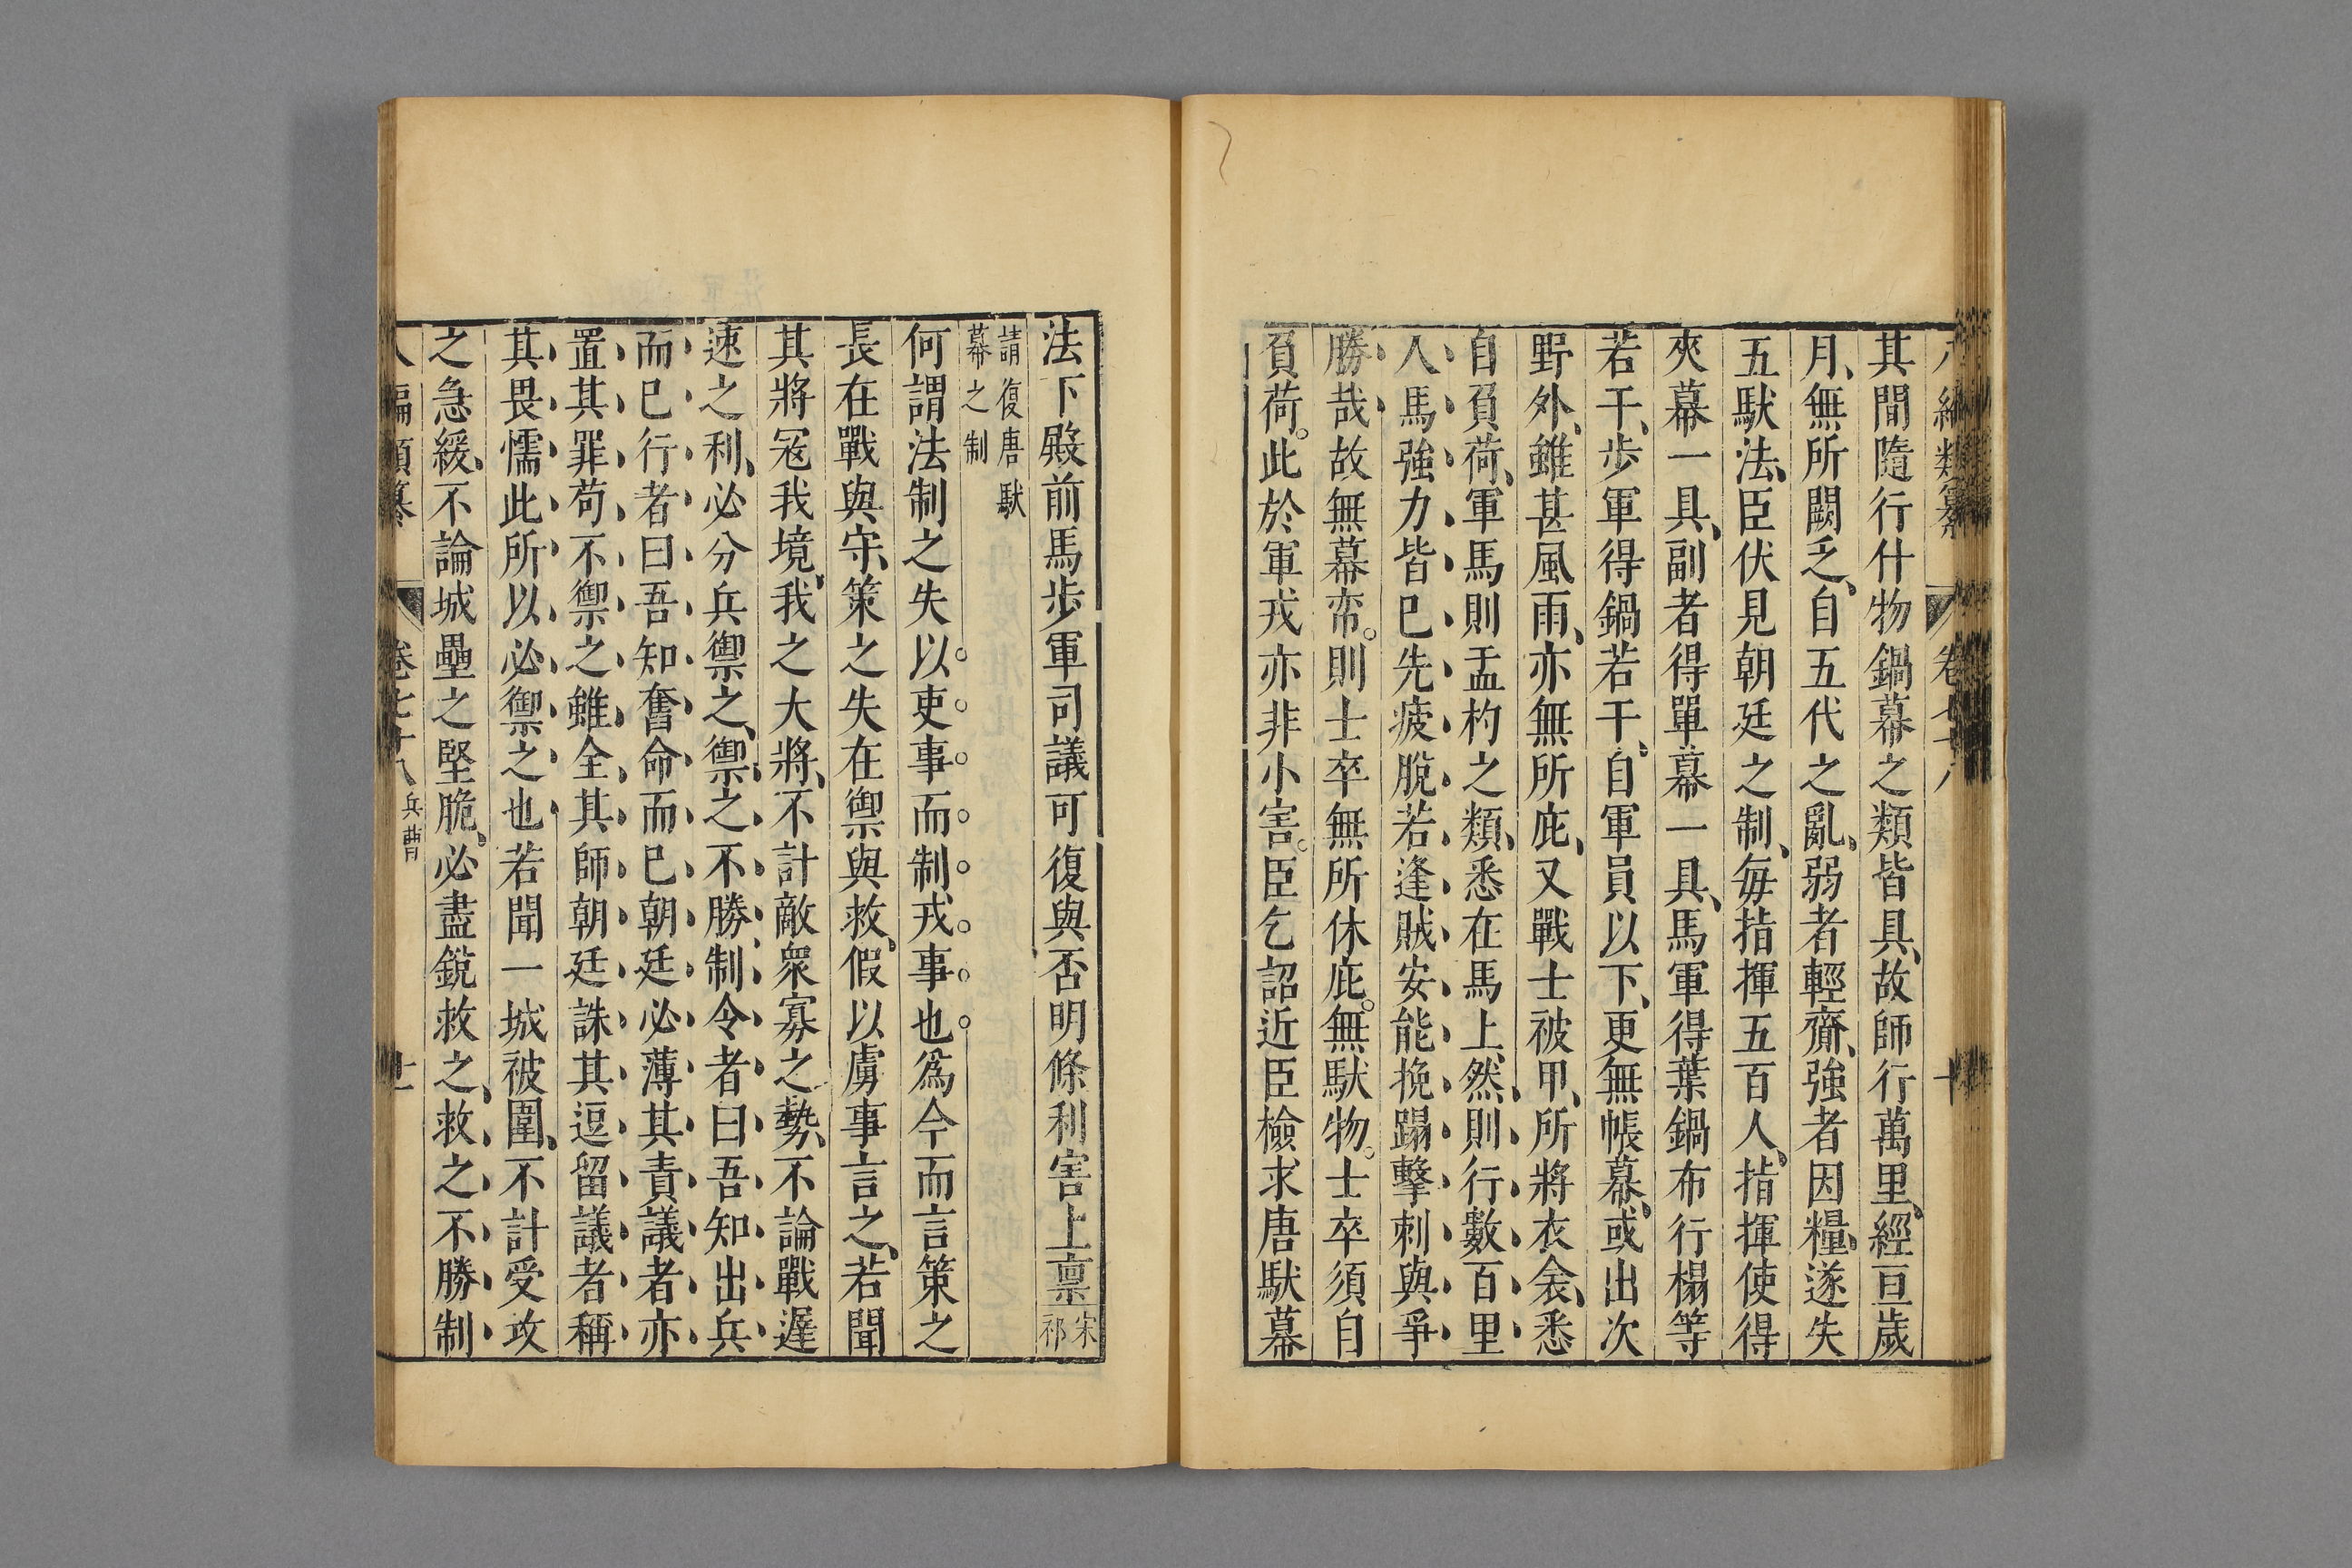 其間隨行什物鍋幕之類皆具、故師行萬里、經亘歲
月、無所闕乏、自五代之亂、弱者輕齎、強者因糧、遂失
五馱法、臣伏見朝廷之制、每指揮五百人、指揮使得
夾幕一具、副者得單幕一具、馬軍得葉鍋布行榻等
若干、步軍得鍋若干、自軍員以下、更無帳幕、或出次
野外、雖甚風雨、亦無所庇、又戰士被甲、所將衣衾、悉
自負荷、軍馬則盂杓之類、悉在馬上、然則行數百里
人馬強力皆已先疲脫若逢賊安能挽蹋擊刺與爭
勝哉故無幕帟。則士卒無所休庇。無馱物。士卒須自
負荷。此於軍戎亦非小害。臣乞詔近臣檢求唐馱幕
法下殿前馬步軍司議可復與否明條利害上稟宋祁
請復唐馱
幕之制
何謂法制之失以吏事而制戎事也為今而言策之
長在戰與守、策之失在禦與救、假以虜事言之、若聞
其將寇我境、我之大將、不計敵衆寡之勢、不論戰遲
速之利、必分兵禦之、禦之不勝制令者曰吾知出兵
而已行者曰吾知奮命而已朝廷必薄其責議者亦
置其罪苟不禦之雖全其師朝廷誅其逗留議者稱
其畏懦此所以必禦之也若聞一城被圍、不計受攻
之急緩、不論城壘之堅脆、必盡銳救之、救之不勝制
八編類纂 卷七十八 兵曹